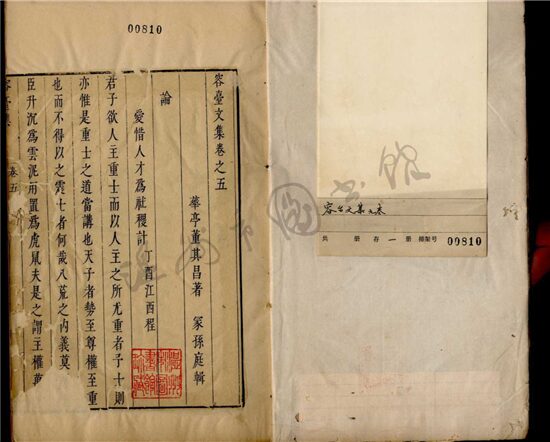 00810
容臺文集卷之五
華亭董其昌著 冢孫庭輯
論
愛惜人才為社稷計 丁酉江西程
君子欲人主重士而以人主之所尤重者予士則
亦惟是重士之道當講也天子者勢至尊權至重
也而不得以之士者何哉八荒之内義莫
臣升沉為雲泥用置為虎鼠夫是之謂主權萬
卷五
容台文集
共 册 存 一 册 排架号 00810